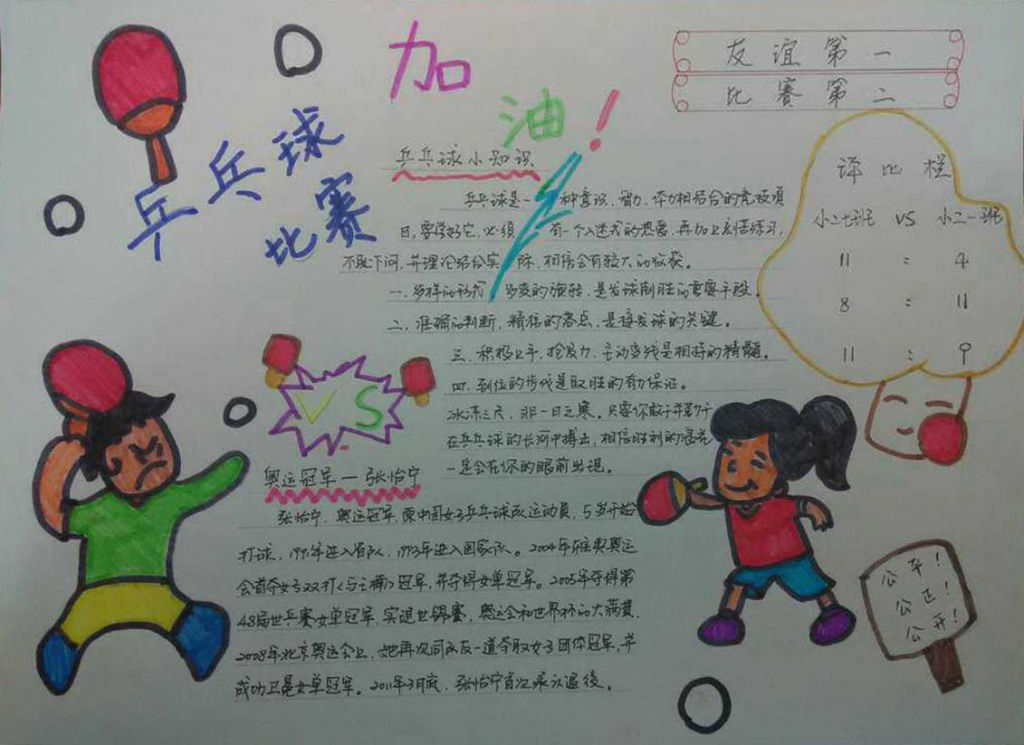 加
油！
乒乓球
比赛
友谊第一
比赛第二
乒乓球小知识
乒乓球是一种意识、智力、体力相结合的竞技项
目，要学好它，必须有一个入迷式的热爱，再加上刻苦练习，
不耻下问，并理论结合实际，相信会有较大的收获。
一、多样的形式，多变的旋转，是发球制胜的重要手段。
二、准确的判断，精准的落点，是接发球的关键。
三、积极上手，抢发力，主动变线是相持的精髓。
四、到位的步伐是取胜的有力保证。
冰冻三尺，非一日之寒。只要你敢于并勤于
在乒乓球的长河中搏击，相信胜利的浪花
一定会在你的眼前出现。
评比栏
小二七班 VS 小二一班
11 : 4
8 : 11
11 : 9
VS
奥运冠军—张怡宁
张怡宁，奥运冠军，原中国女子乒乓球队运动员，5岁开始
打球，1991年进入省队，1993年进入国家队。2004年在雅典奥运
会首夺女子双打（与王楠）冠军，并夺得女单冠军。2005年夺得第
48届世乒赛女单冠军，实现世锦赛，奥运会和世界杯的大满贯。
2008年北京奥运会上，她再次同队友一道夺取女子团体冠军，并
成功卫冕女单冠军。2011年3月底，张怡宁首次承认退役。
公平！
公正！
公开！